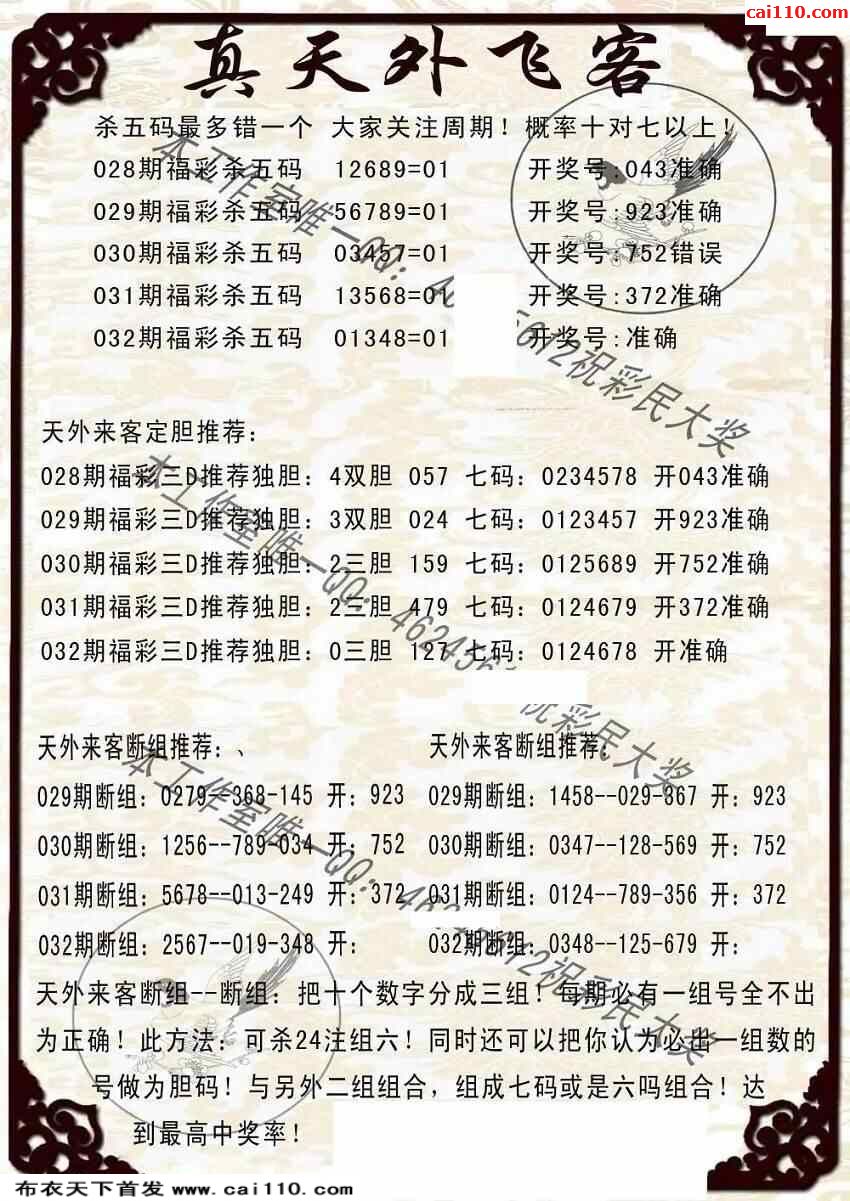 cai110.com
真天外飞客
杀五码最多错一个 大家关注周期！概率十对七以上！
028期福彩杀五码 12689=01 开奖号:043准确
029期福彩杀五码 56789=01 开奖号:923准确
030期福彩杀五码 03457=01 开奖号:752错误
031期福彩杀五码 13568=01 开奖号:372准确
032期福彩杀五码 01348=01 开奖号:准确
天外来客定胆推荐：
028期福彩三D推荐独胆：4双胆 057 七码：0234578 开043准确
029期福彩三D推荐独胆：3双胆 024 七码：0123457 开923准确
030期福彩三D推荐独胆：2三胆 159 七码：0125689 开752准确
031期福彩三D推荐独胆：2三胆 479 七码：0124679 开372准确
032期福彩三D推荐独胆：0三胆 127 七码：0124678 开准确
天外来客断组推荐：、 天外来客断组推荐：
029期断组：0279--368-145 开：923 029期断组：1458--029-367 开：923
030期断组：1256--789-034 开：752 030期断组：0347--128-569 开：752
031期断组：5678--013-249 开：372 031期断组：0124--789-356 开：372
032期断组：2567--019-348 开： 032期断组：0348--125-679 开：
天外来客断组--断组：把十个数字分成三组！每期必有一组号全不出
为正确！此方法：可杀24注组六！同时还可以把你认为必出一组数的
号做为胆码！与另外二组组合，组成七码或是六吗组合！达
到最高中奖率！
本工作室唯一QQ：
祝彩民大奖
本工作室唯一QQ：
祝彩民大奖
本工作室唯一QQ：
祝彩民大奖
布衣天下首发 www.cai110.com